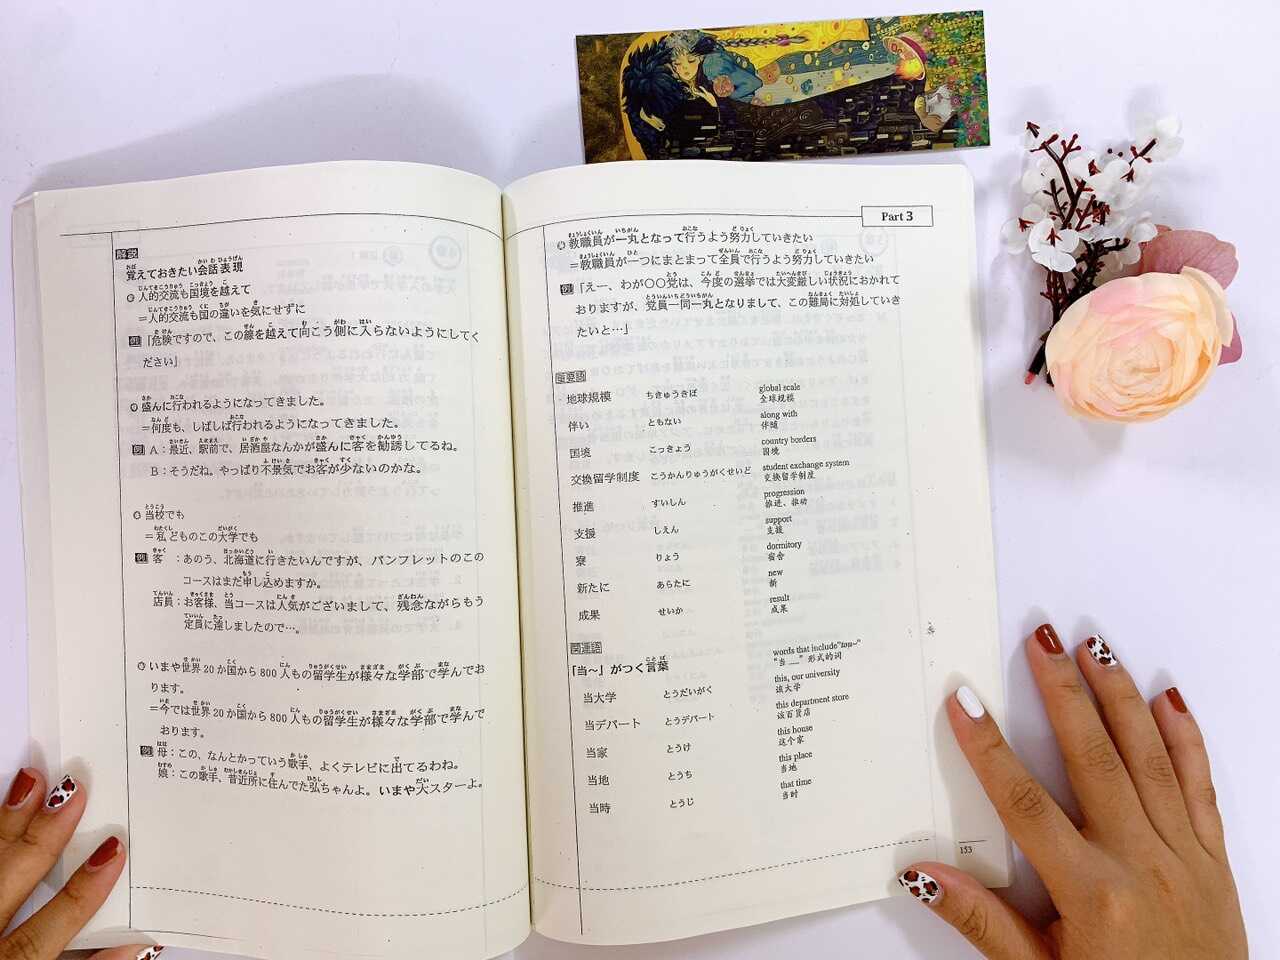 解説
覚えておきたい会話表現
人的交流も国境を越えて
＝人的交流も国の違いを気にせずに
例「危険ですので、この線を越えて向こう側に入らないようにしてく
ださい」
盛んに行われるようになってきました。
＝何度も、しばしば行われるようになってきました。
例 A：最近、駅前で、居酒屋なんかが盛んに客を勧誘してるね。
B：そうだね。やっぱり不景気でお客が少ないのかな。
当校でも
＝私どものこの大学でも
例 客：あのう、北海道に行きたいんですが、パンフレットのこの
コースはまだ申し込めますか。
店員：お客様、当コースは人気がございまして、残念ながらもう
定員に達しましたので…。
いまや世界20か国から800人もの留学生が様々な学部で学んでお
ります。
＝今では世界20か国から800人もの留学生が様々な学部で学んで
おります。
例 母：この、なんとかっていう歌手、よくテレビに出てるわね。
娘：この歌手、昔近所に住んでた弘ちゃんよ。いまや大スターよ。
Part 3
教職員が一丸となって行うよう努力していきたい
＝教職員が一つにまとまって全員で行うよう努力していきたい
例「えー、わが〇〇党は、今度の選挙では大変厳しい状況におかれて
おりますが、党員一同一丸となりまして、この難局に対処していき
たいと…」
重要語
地球規模 ちきゅうきぼ global scale
全球规模
伴い ともない along with
伴随
国境 こっきょう country borders
国境
交換留学制度 こうかんりゅうがくせいど student exchange system
交换留学制度
推進 すいしん progression
推进、推动
支援 しえん support
支援
寮 りょう dormitory
宿舍
新たに あらたに new
新
成果 せいか result
成果
関連語
「当～」がつく言葉 words that include"tou~"
"当__" 形式的词
当大学 とうだいがく this, our university
该大学
当デパート とうデパート this department store
该百货店
当家 とうけ this house
这个家
当地 とうち this place
当地
当時 とうじ that time
当时
153